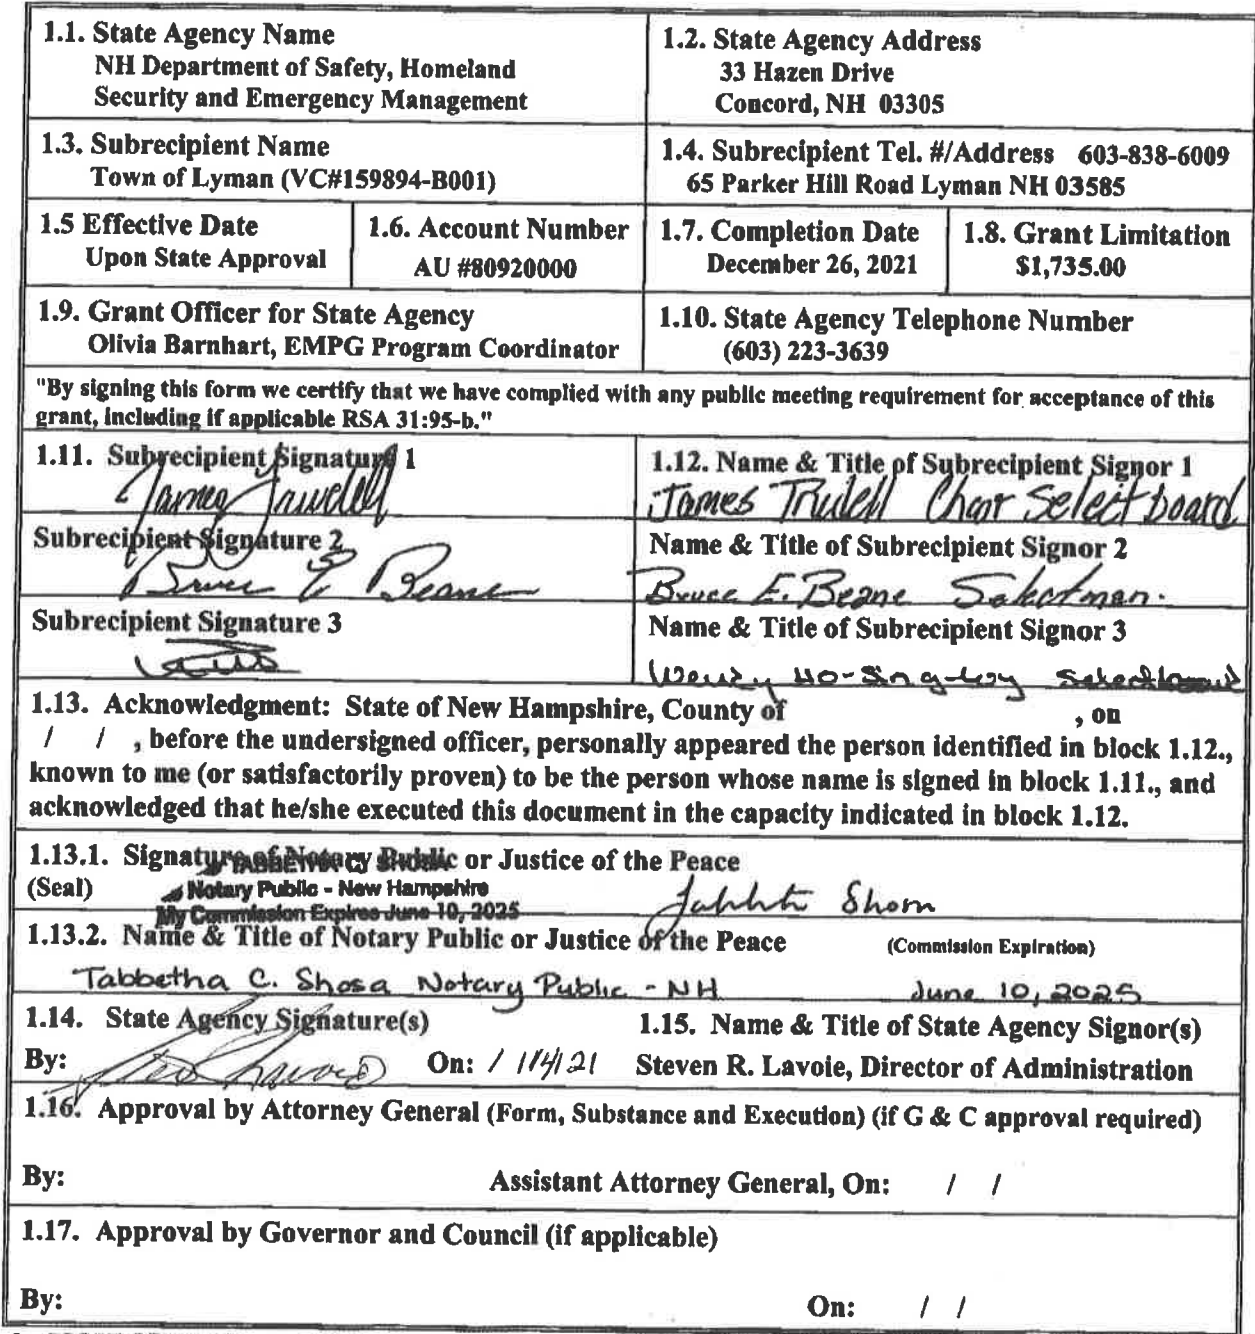 1.1. State Agency Name
NH Department of Safety, Homeland
Security and Emergency Management
1.2. State Agency Address
33 Hazen Drive
Concord, NH 03305
1.3. Subrecipient Name
Town of Lyman (VC#159894-B001)
1.4. Subrecipient Tel. #/Address 603-838-6009
65 Parker Hill Road Lyman NH 03585
1.5 Effective Date
Upon State Approval
1.6. Account Number
AU #80920000
1.7. Completion Date
December 26, 2021
1.8. Grant Limitation
$1,735.00
1.9. Grant Officer for State Agency
Olivia Barnhart, EMPG Program Coordinator
1.10. State Agency Telephone Number
(603) 223-3639
"By signing this form we certify that we have complied with any public meeting requirement for acceptance of this
grant, including if applicable RSA 31:95-b."
1.11. Subrecipient Signature 1
James Trudell
1.12. Name & Title of Subrecipient Signor 1
James Trudell Chair Select board
Subrecipient Signature 2
Bruce E Beane
Name & Title of Subrecipient Signor 2
Bruce E. Beane Selectman.
Subrecipient Signature 3
Name & Title of Subrecipient Signor 3
Wendy Ho-Sing-Loy
1.13. Acknowledgment: State of New Hampshire, County of , on
/ / , before the undersigned officer, personally appeared the person identified in block 1.12.,
known to me (or satisfactorily proven) to be the person whose name is signed in block 1.11., and
acknowledged that he/she executed this document in the capacity indicated in block 1.12.
1.13.1. Signature of Notary Public or Justice of the Peace
(Seal)
Notary Public - New Hampshire
My Commission Expires June 10, 2025
1.13.2. Name & Title of Notary Public or Justice of the Peace (Commission Expiration)
Tabbetha C. Shosa Notary Public - NH June 10, 2025
1.14. State Agency Signature(s)
By: On: / 1/4/21
1.15. Name & Title of State Agency Signor(s)
Steven R. Lavoie, Director of Administration
1.16. Approval by Attorney General (Form, Substance and Execution) (if G & C approval required)
By: Assistant Attorney General, On: / /
1.17. Approval by Governor and Council (if applicable)
By: On: / /